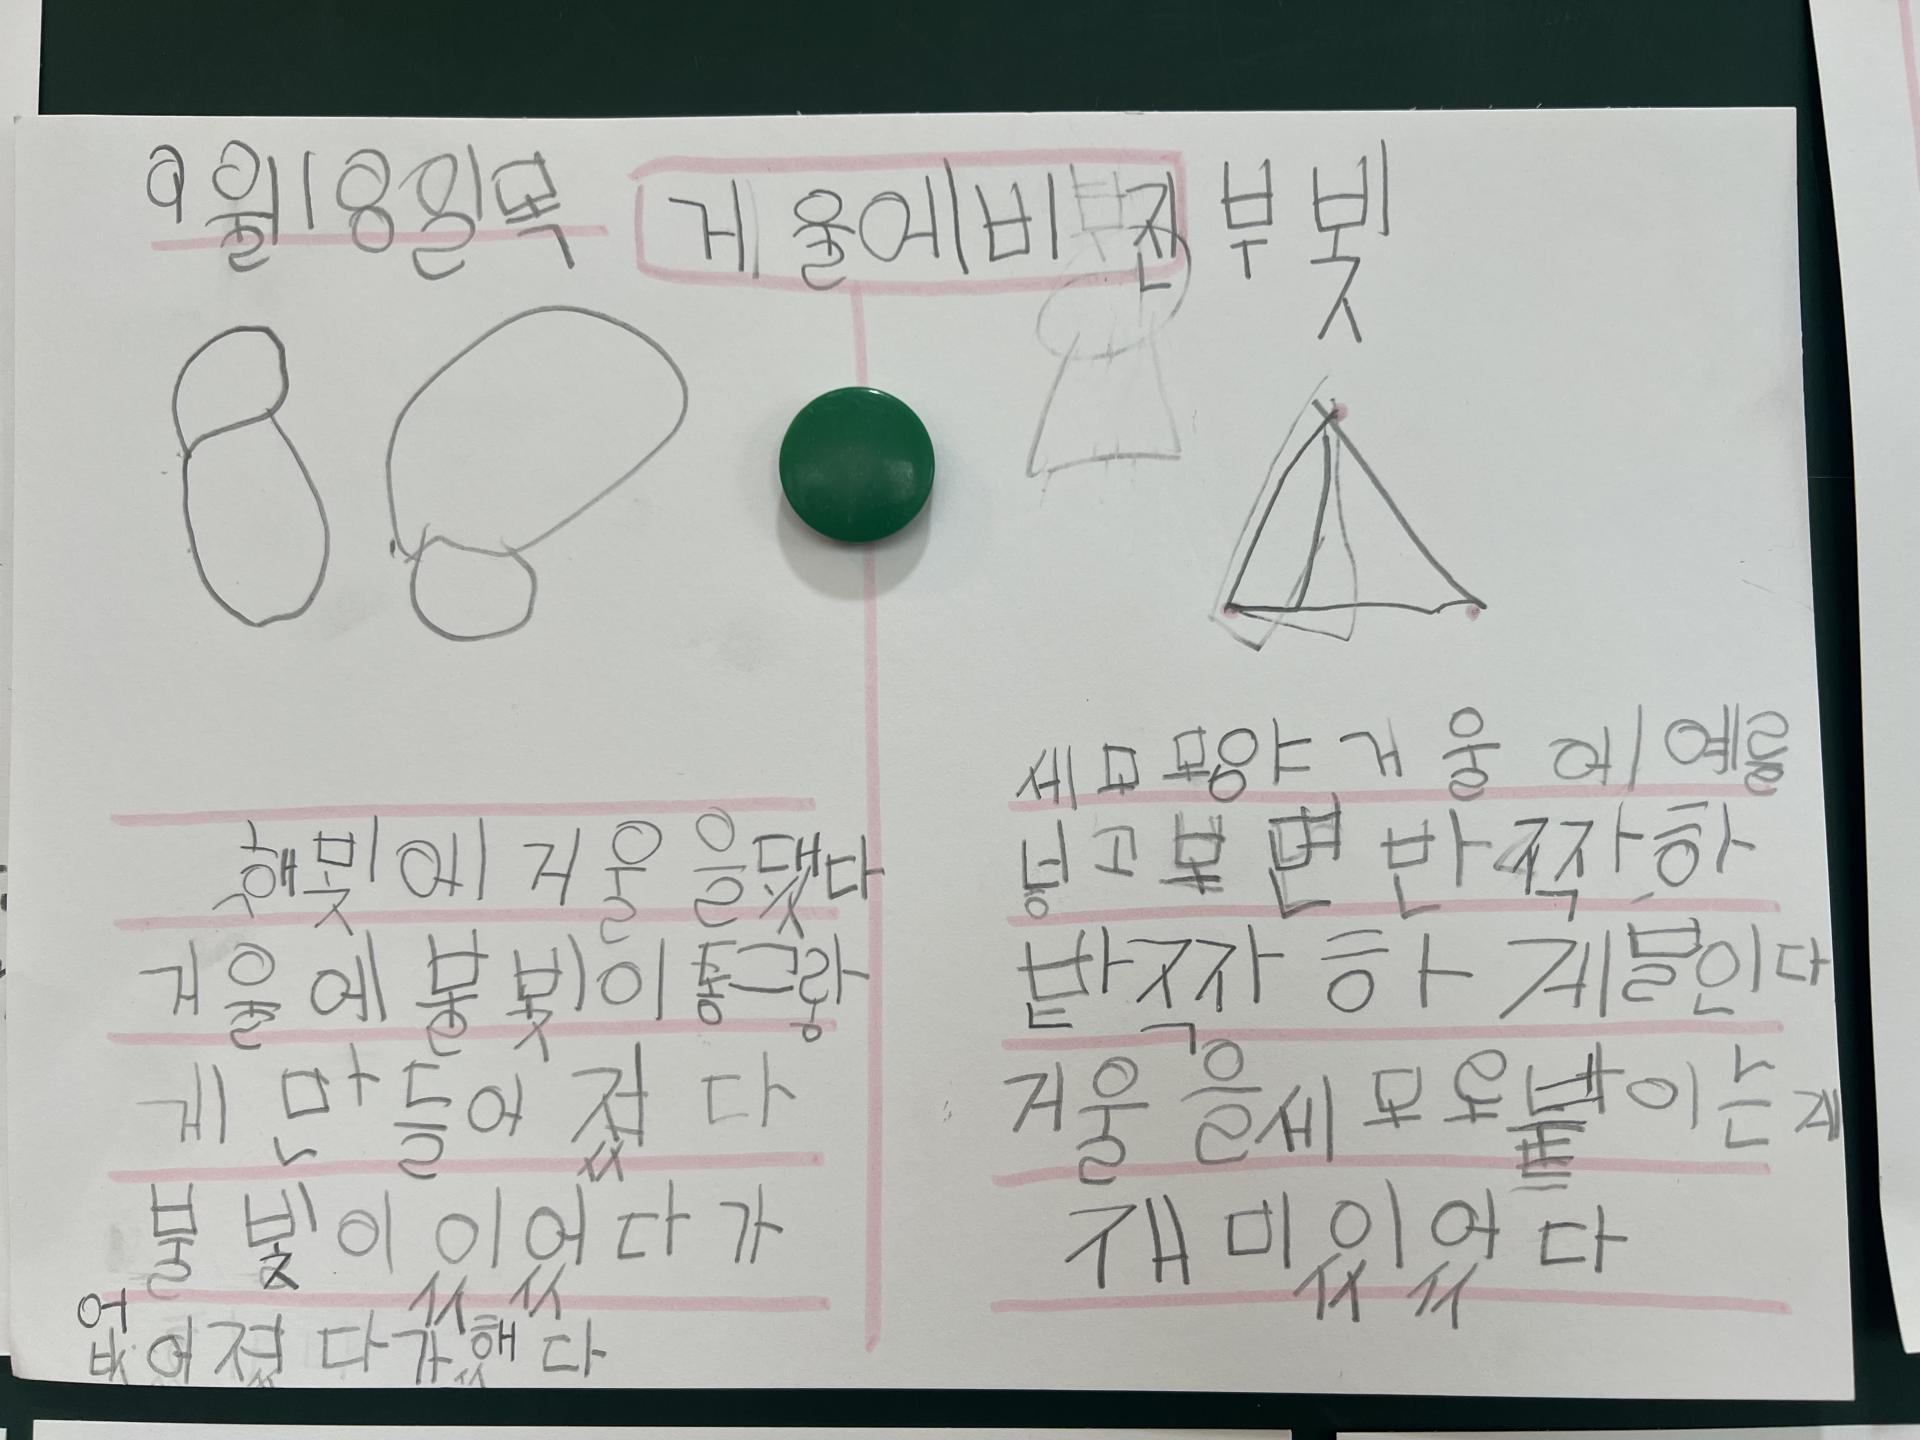 9월18일목
게울에비친 부빛
햇빗에 거울을댓다
거울에 불빛이 동그랑
게 만들어 젔다
불 빛이 있었다가
없어졌다가했다
세모 모양 거울 에 예를
넣고 보면 반짝 하
반짝 하 게보인다
거울을세모로붙이는게
재미있었다